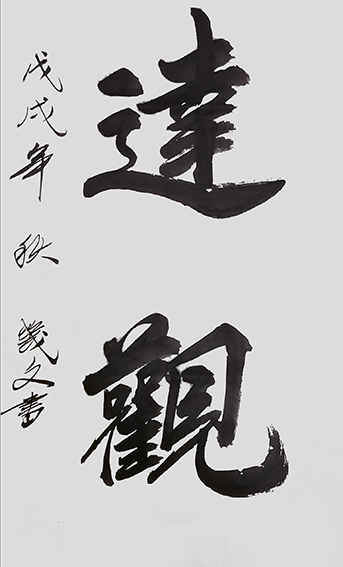 達觀
戊戌年 秋 幾文書